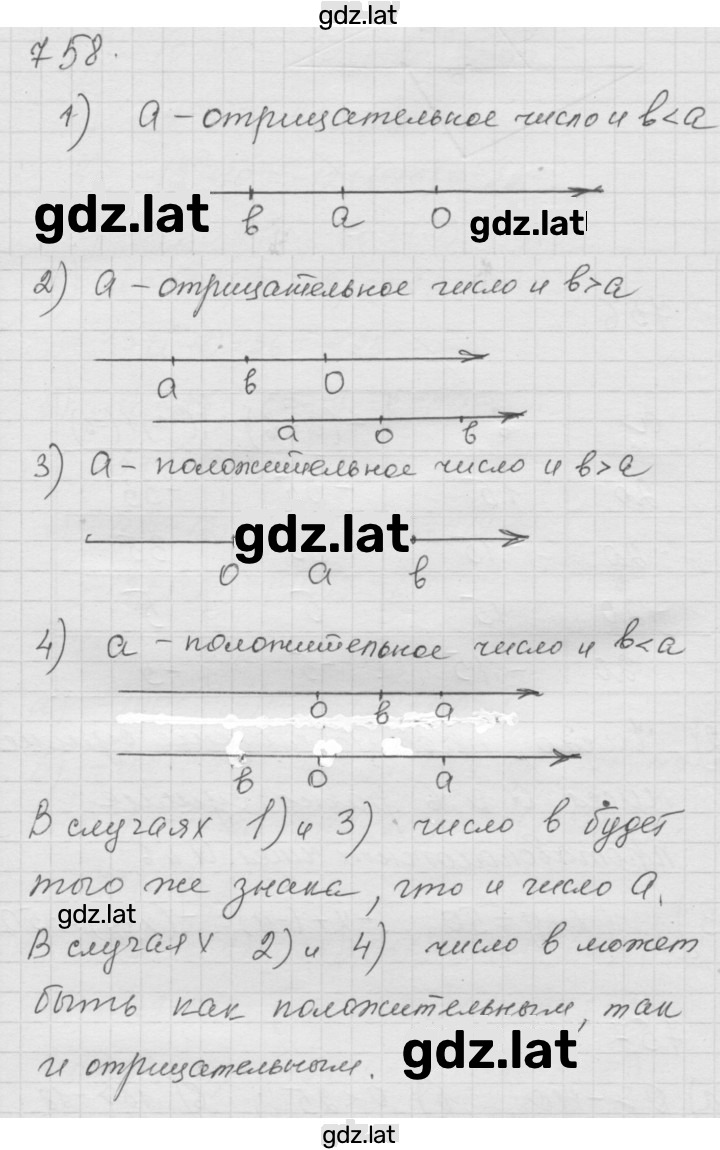 gdz.lat
758.
1) a – отрицательное число и в < а
gdz.lat
в а 0 gdz.lat
2) а – отрицательное число и в > а
а в 0
а 0 в
3) а – положительное число и в > а
gdz.lat
0 а в
4) а – положительное число и в < а
0 в а
в 0 а
В случаях 1) и 3) число в будет
того же знака, что и число а.
gdz.lat
В случаях 2) и 4) число в может
быть как положительным, так
и отрицательным.
gdz.lat
gdz.lat